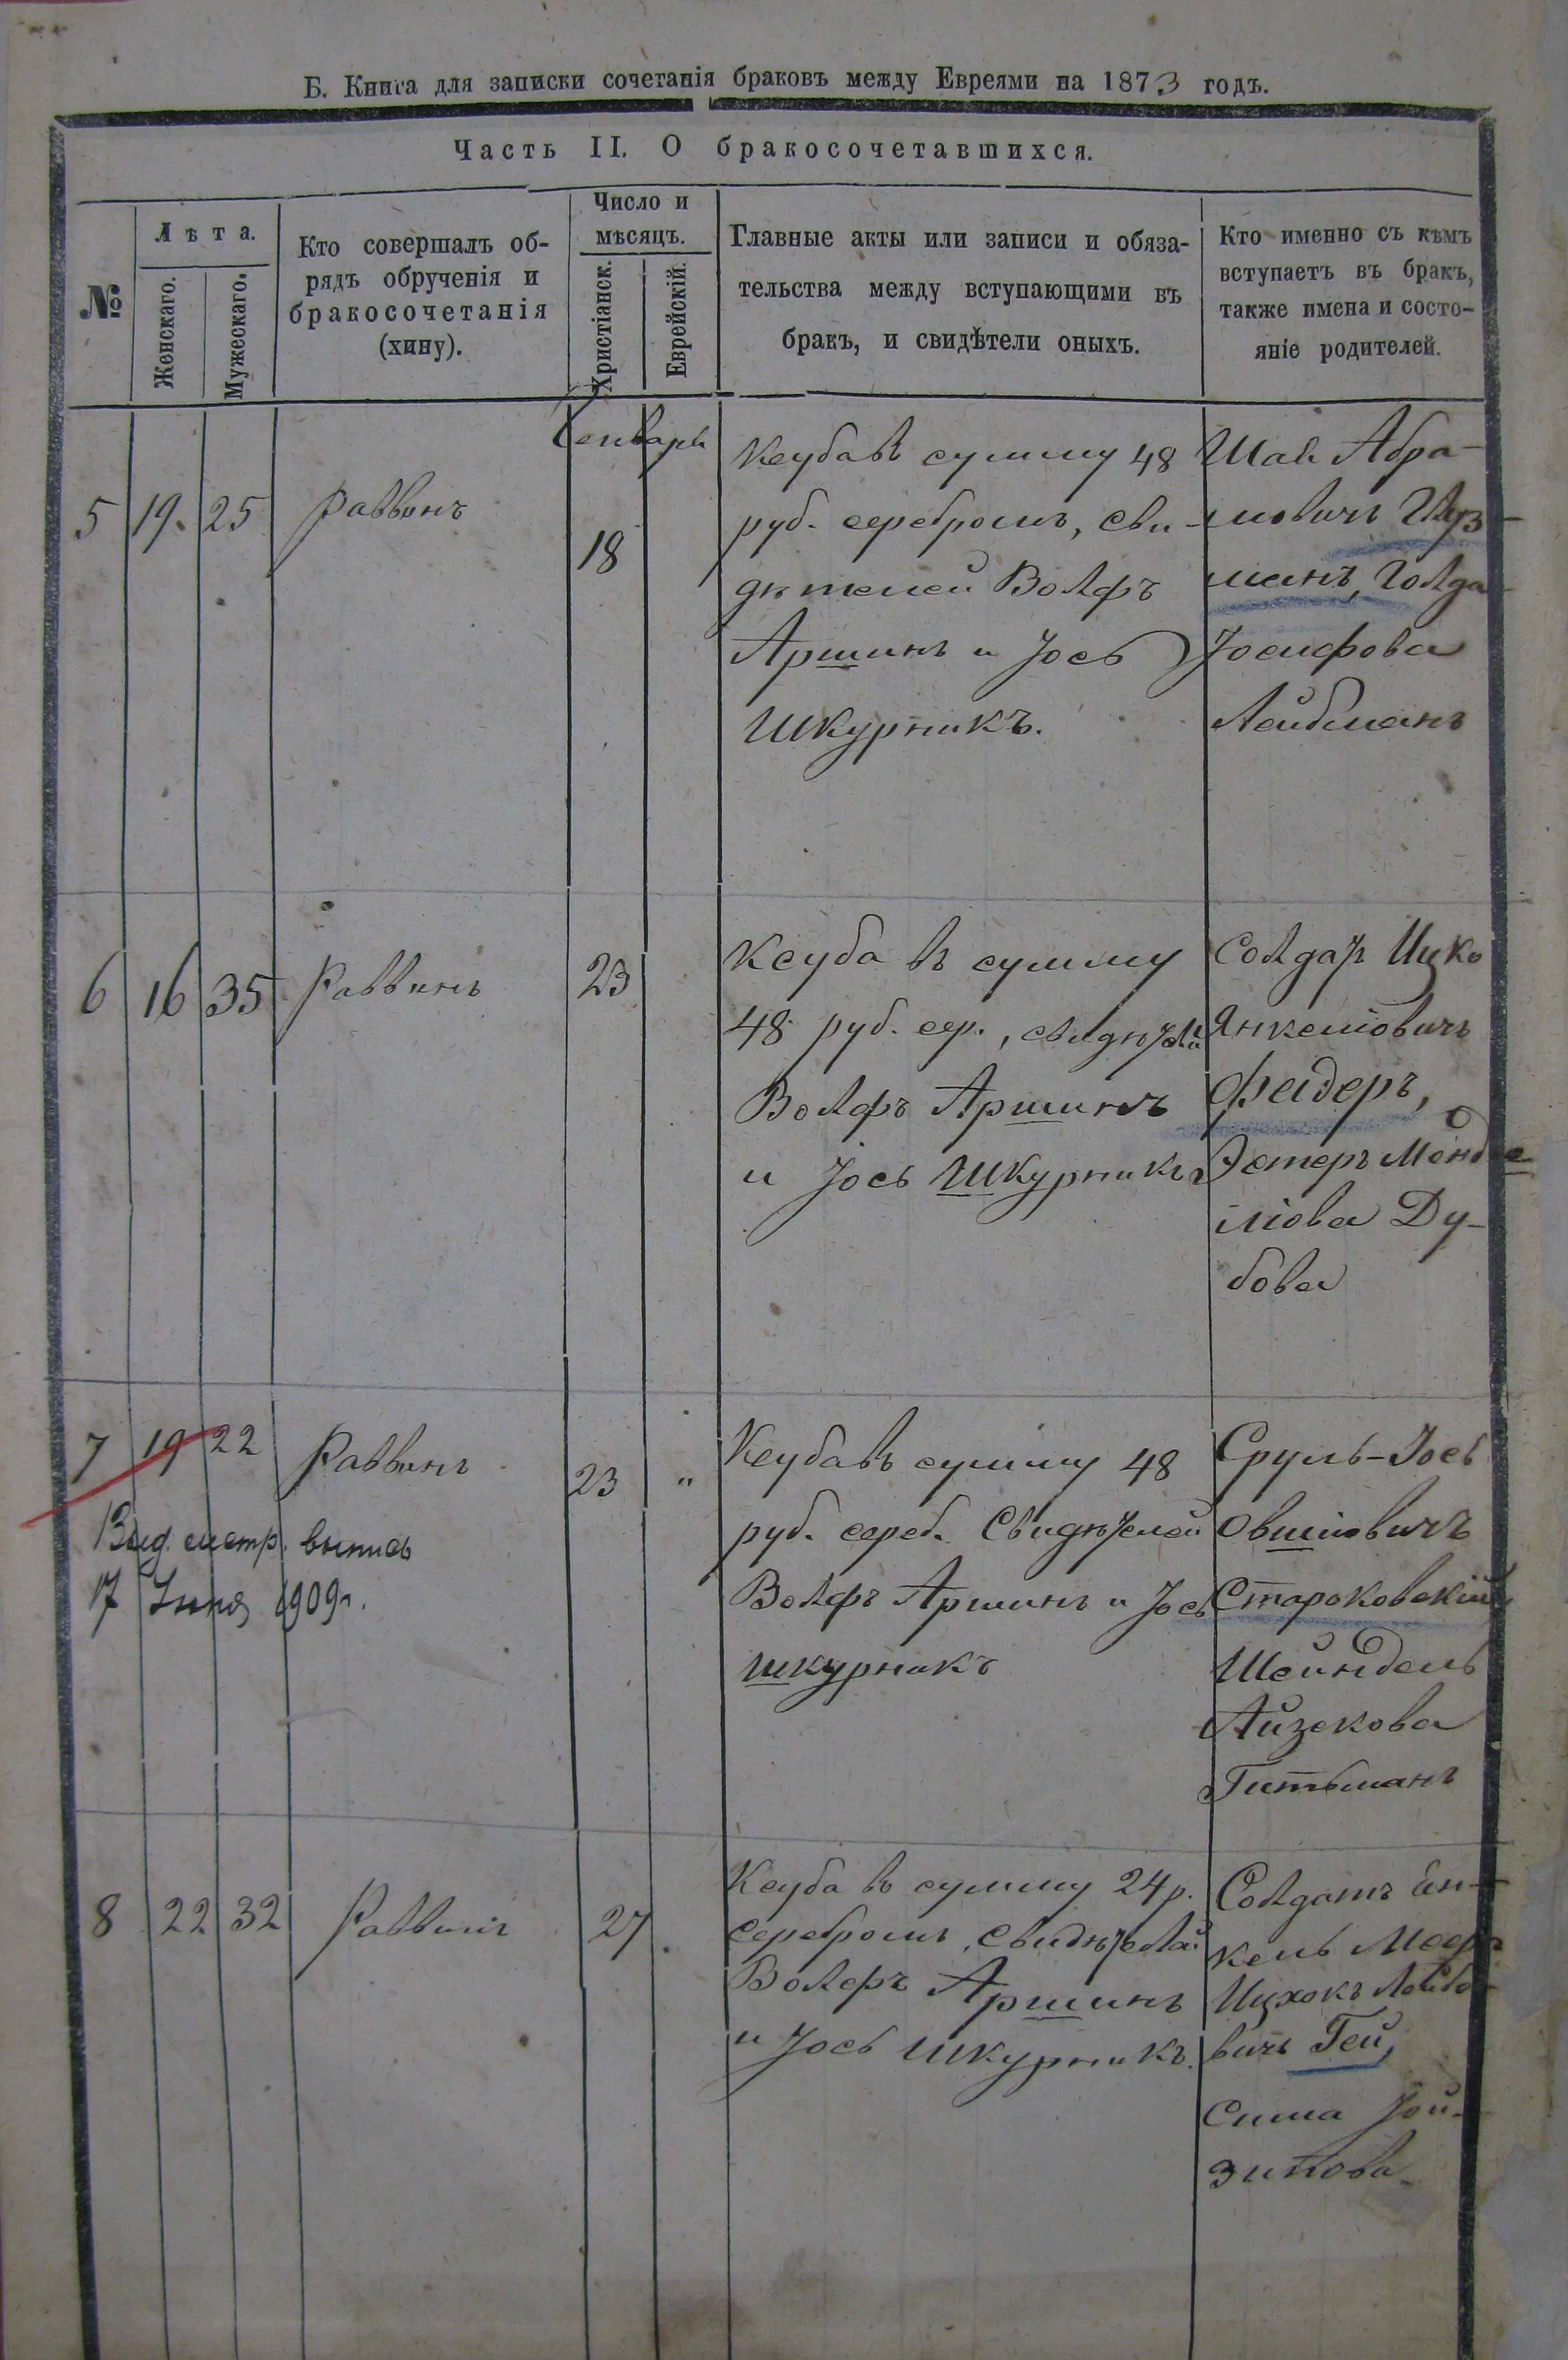 Б. Книга для записки сочетанія браковъ между Евреями на 1873 годъ.
Часть II. О бракосочетавшихся.
№
Лѣта.
Женскаго.
Мужескаго.
Кто совершалъ об-
рядъ обрученія и
бракосочетанія
(хину).
Число и
мѣсяцъ.
Христіанск.
Еврейскій.
Главные акты или записи и обяза-
тельства между вступающими въ
бракъ, и свидѣтели оныхъ.
Кто именно съ кѣмъ
вступаетъ въ бракъ,
также имена и состо-
яніе родителей.
5 19. 25 Раввинъ
Генваря
18
Ксуба въ сумму 48
руб. серебромъ, сви-
дѣтелей Волфъ
Аршинъ и Іось
Шкурникъ.
Абра-
мовичъ
манъ, Голда
Іосифова
Лейбманъ
6 16 35 Раввинъ 23
Ксуба въ сумму
48 руб. сер., свидѣтели
Волфъ Аршинъ
и Іось Шкурникъ
Солдат Ицко
Янкелiовичъ
Федеръ,
Эстеръ Менде
лiова Ду-
бова
7 19 22 Раввинъ 23 "
Выд. метр. выпись
17 1909г.
Ксуба въ сумму 48
руб. сереб. Свидѣтелей
Волфъ Аршинъ и Іось
Шкурникъ
Сруль-Іось
Овшiовичъ
Староковскій
Шейндель
Айзекова
Гитьманъ
8 22 32 Раввинъ 27
Ксуба въ сумму 24 р.
серебромъ, свидѣтелей
Волфъ Аршинъ
и Іось Шкурникъ.
Солдатъ Ен-
кель
Ицхокъ Лейбо-
вичъ Гей,
Сима Іой-